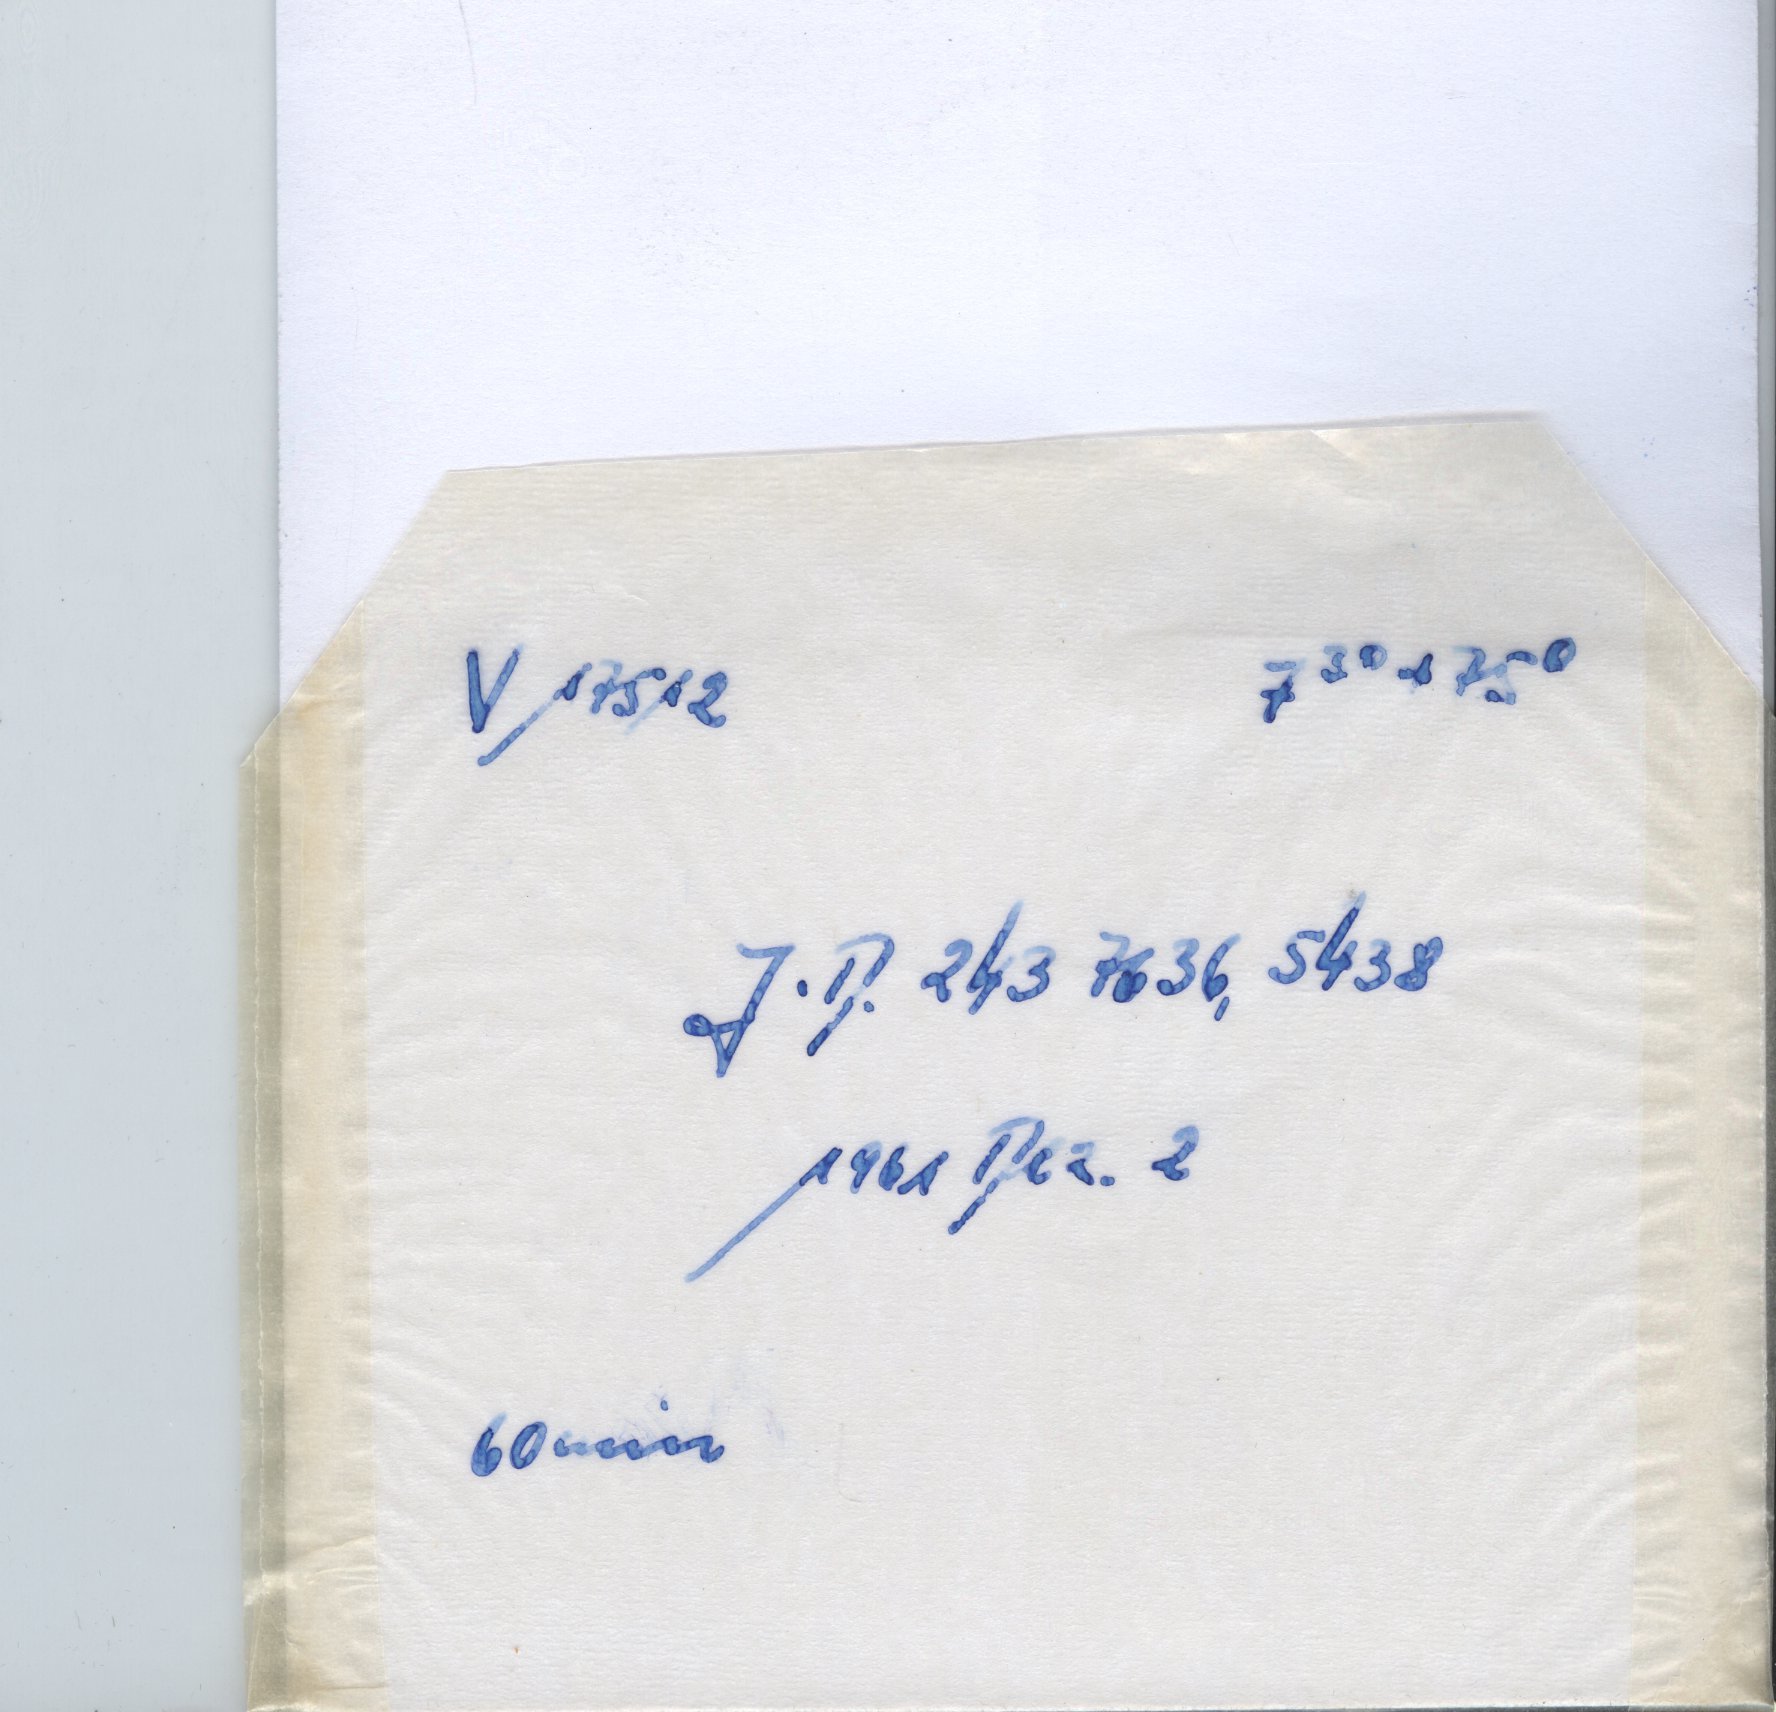 V 17512 7³⁰ + 75⁰
J.D. 243 7636,5438
1961 Dez. 2
60 min